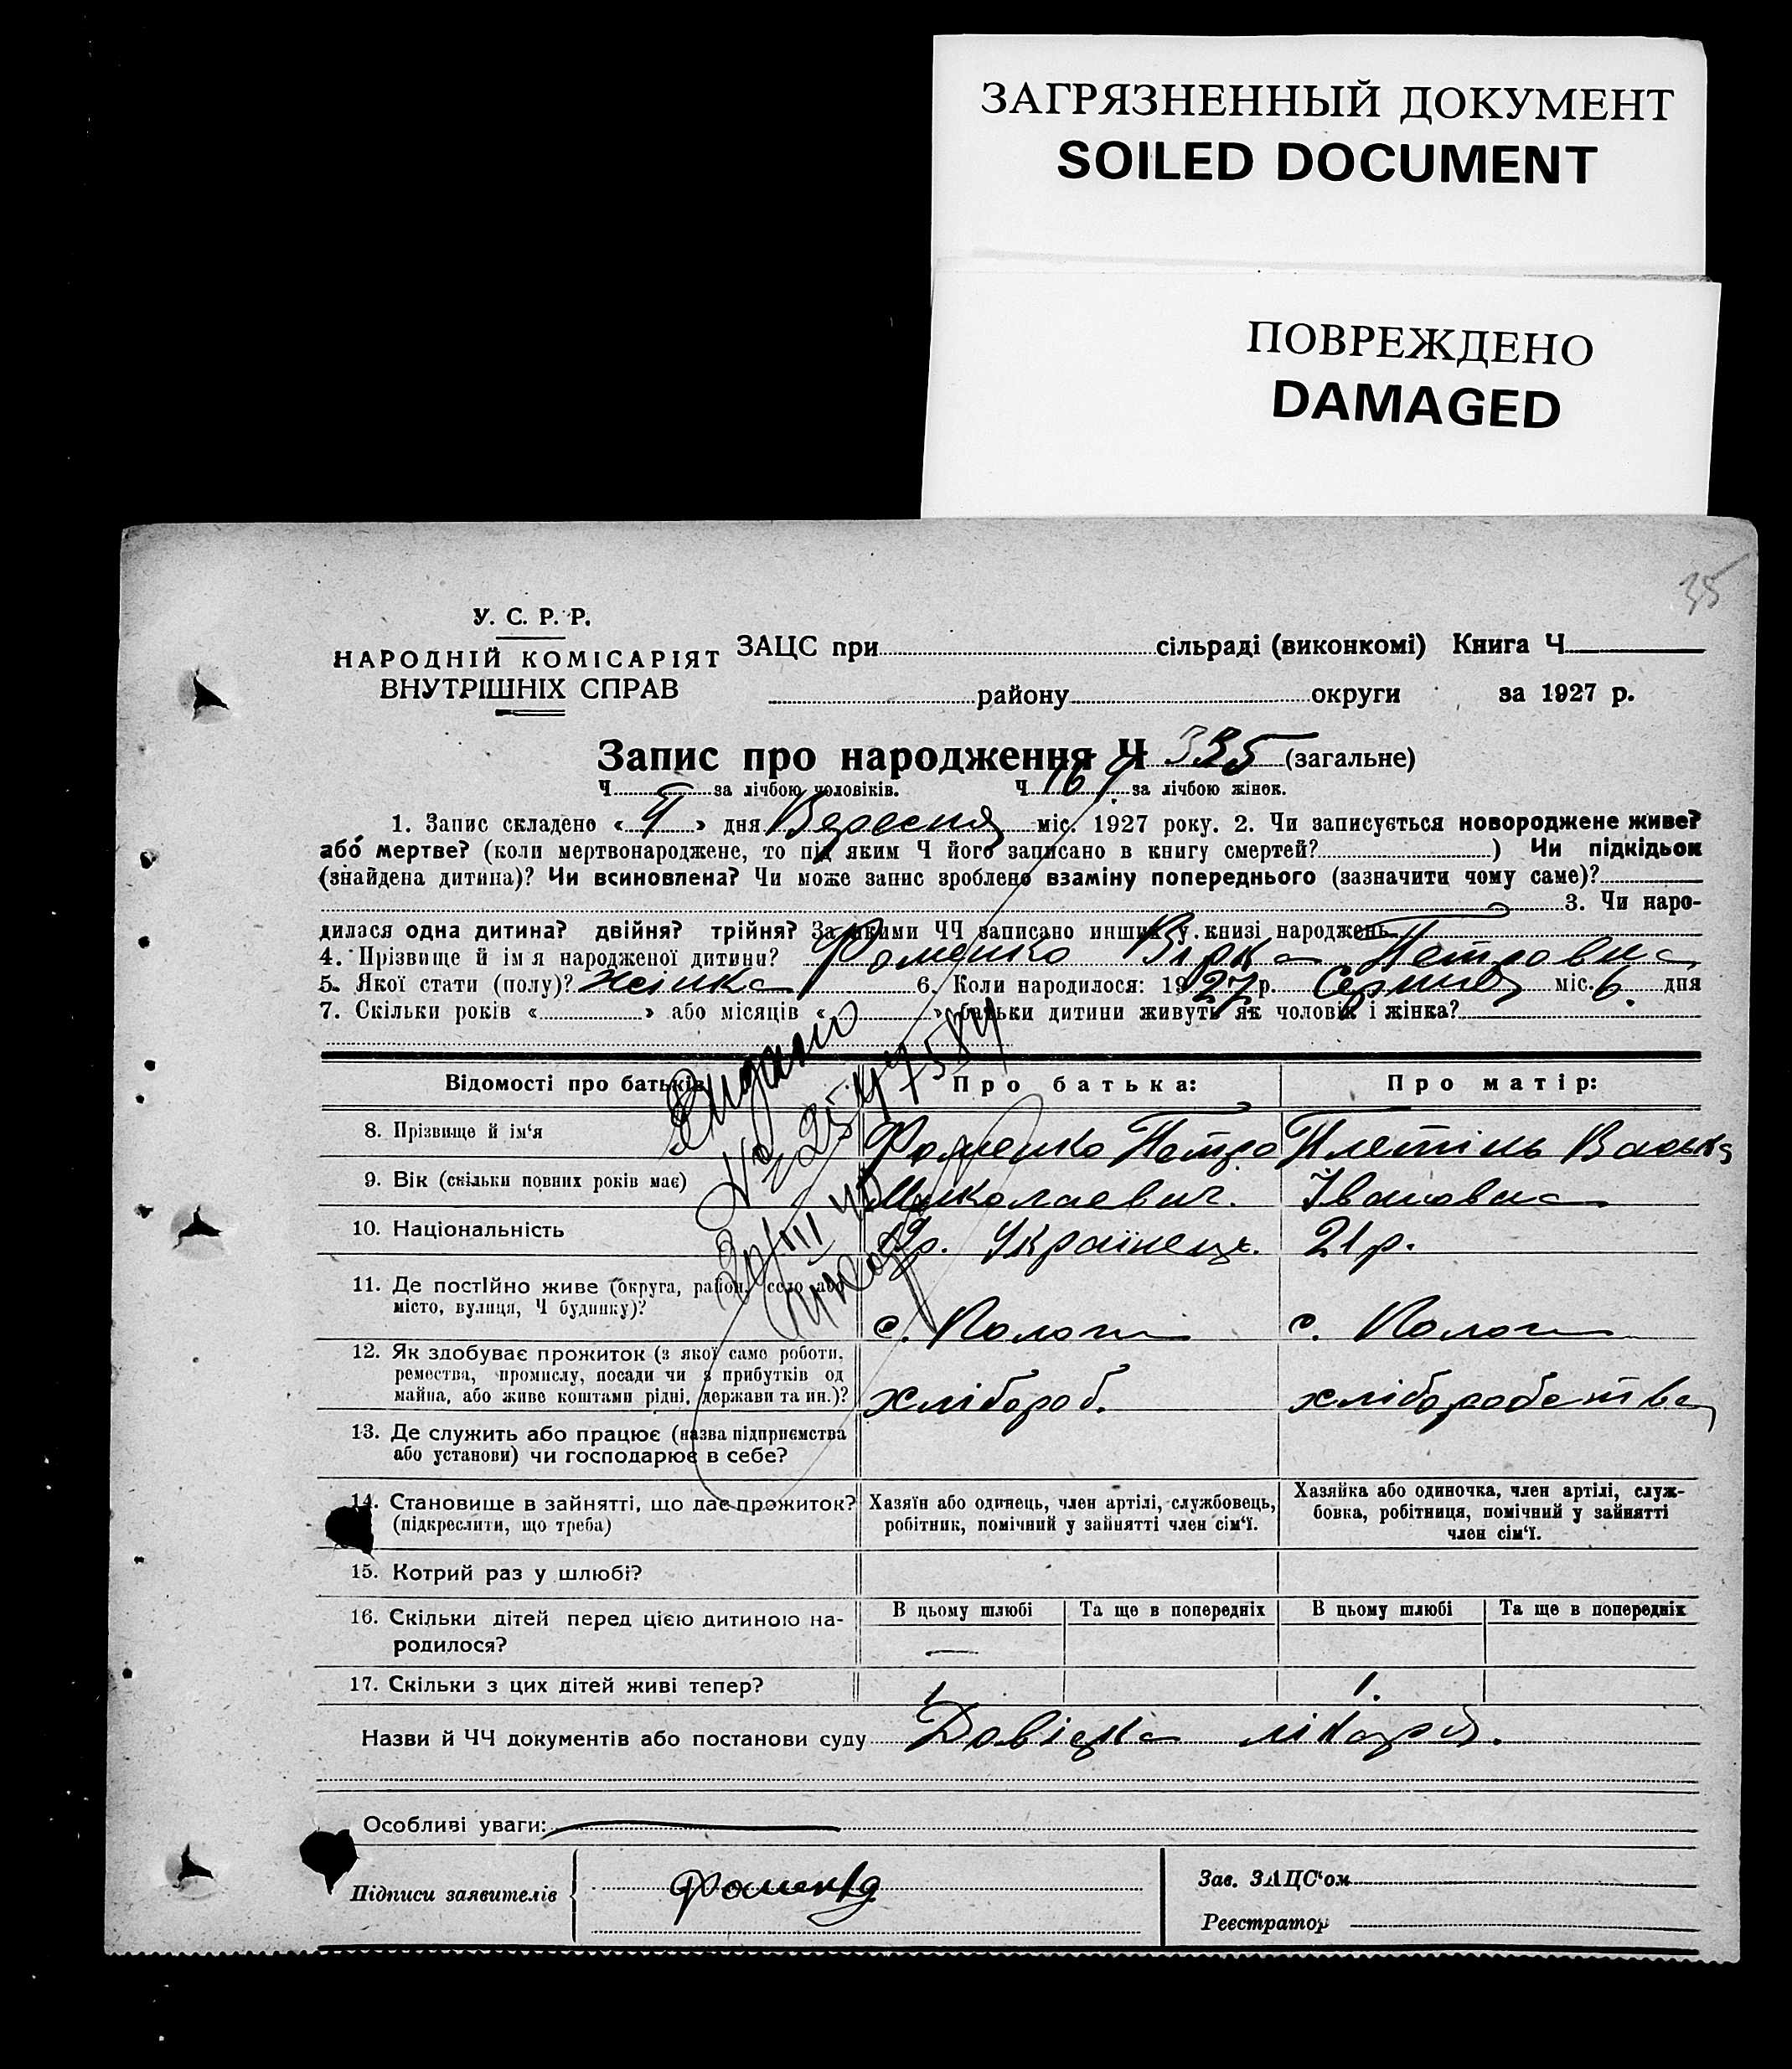 ЗАГРЯЗНЕННЫЙ ДОКУМЕНТ
SOILED DOCUMENT
ПОВРЕЖДЕНО
DAMAGED
35
У. С. Р. Р.
НАРОДНІЙ КОМІСАРІЯТ
ВНУТРІШНІХ СПРАВ
ЗАЦС при сільраді (виконкомі) Книга Ч
району округи за 1927 р.
Запис про народження Ч 335 (загальне)
Ч за лічбою чоловіків. Ч 167 за лічбою жінок.
1. Запис складено « » дня Вересня міс. 1927 року. 2. Чи записується новороджене живе?
або мертве? (коли мертвонароджене, то під яким Ч його записано в книгу смертей? ) Чи підкідьок
(знайдена дитина)? Чи всиновлена? Чи може запис зроблено взаміну попереднього (зазначити чому саме)?
3. Чи наро-
дилася одна дитина? двійня? трійня? За якими ЧЧ записано инших у книзі народжень
4. Прізвище й ім'я народженої дитини? Фоменко Вірка Петровна
5. Якої стати (полу)? жінка 6. Коли народилося: 1927 р. Серпня міс. 6. дня
7. Скільки років « » або місяців « » батьки дитини живуть як чоловік і жінка?
Видано
№
Відомості про батьків Про батька: Про матір:
8. Прізвище й ім'я Фоменко Петро Плетінь Васька
9. Вік (скільки повних років має) Миколаевич. Івановна
10. Національність Українець. 21 р.
11. Де постійно живе (округа, район, село або
місто, вулиця, Ч будинку)? с. Пологи с. Пологи
12. Як здобуває прожиток (з якої само роботи,
ремества, промислу, посади чи з прибутків од
майна, або живе коштами рідні, держави та ин.)? хлібороб. хліборобства
13. Де служить або працює (назва підприємства
або установи) чи господарює в себе?
14. Становище в зайнятті, що дає прожиток?
(підкреслити, що треба)
Хазяїн або одинець, член артілі, службовець,
робітник, помічний у зайнятті член сім'ї.
Хазяйка або одиночка, член артілі, служ-
бовка, робітниця, помічний у зайнятті
член сім'ї.
15. Котрий раз у шлюбі?
16. Скільки дітей перед цією дитиною на-
родилося?
В цьому шлюбі Та ще в попередніх В цьому шлюбі Та ще в попередніх
—
17. Скільки з цих дітей живі тепер? 1 1.
Назви й ЧЧ документів або постанови суду Довідка лікаря.
Особливі уваги:
Підписи заявителів Фоменко
Зав. ЗАЦС'ом
Реєстратор